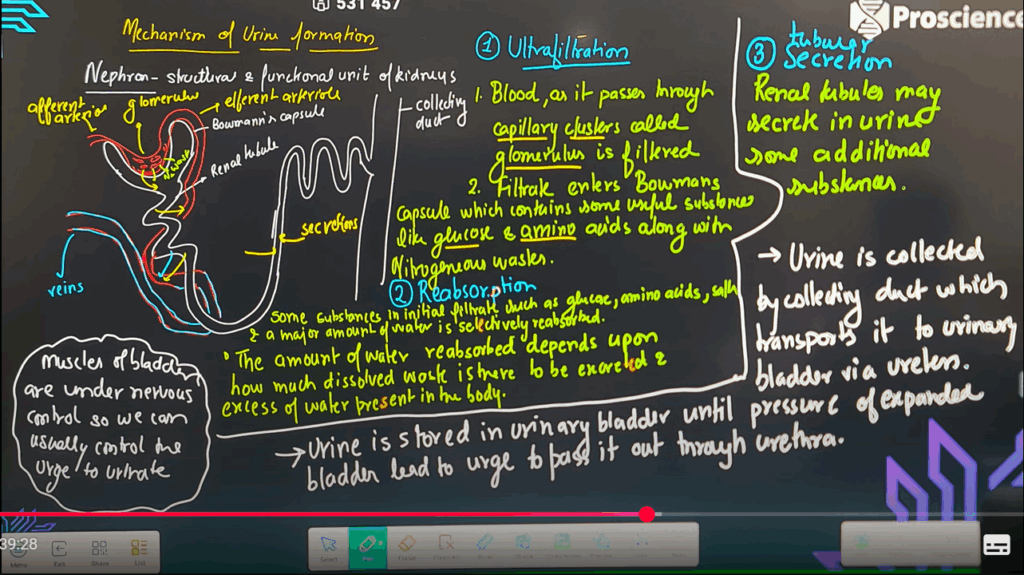 531 457
Proscience
Mechanism of Urine formation
Nephron - structural & functional unit of kidneys
afferent
arteriole
glomerulus
efferent arteriole
Bowmann's capsule
Renal tubule
collecting
duct
secretions
veins
① Ultrafiltration
1. Blood, as it passes through
capillary clusters called
glomerulus is filtered
2. Filtrate enters Bowmans
capsule which contains some useful substances
like glucose & amino acids along with
Nitrogeneous wastes.
② Reabsorption
Some substances in initial filtrate such as glucose, amino acids, salts
& a major amount of water is selectively reabsorbed.
The amount of water reabsorbed depends upon
how much dissolved waste is there to be excreted &
excess of water present in the body.
③ tubular
secretion
Renal tubules may
secrete in urine
some additional
substances.
→ Urine is collected
by collecting duct which
transports it to urinary
bladder via ureters.
→ Urine is stored in urinary bladder until pressure of expanded
bladder lead to urge to pass it out through urethra.
Muscles of bladder
are under nervous
control so we can
usually control the
urge to urinate
39:28
Menu
Share
List
Select
Pen